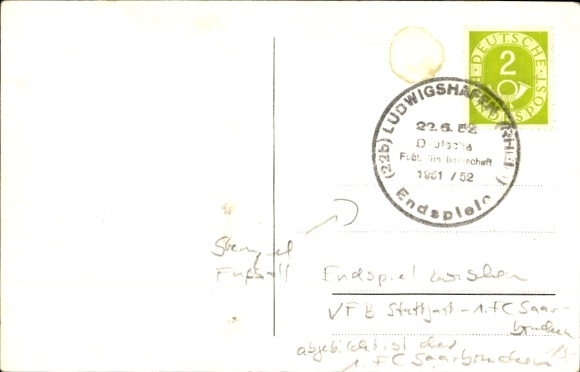 DEUTSCHE BUNDESPOST
2
(22b) LUDWIGSHAFEN (RHEIN)
22.6.52
Deutsche
Fußballmeisterschaft
1951/52
Endspiele
Stempel
Fußball
Endspiel zwischen
VFB Stuttgart - 1. FC Saar-
brücken
abgebildet ist der
1. FC Saarbrücken